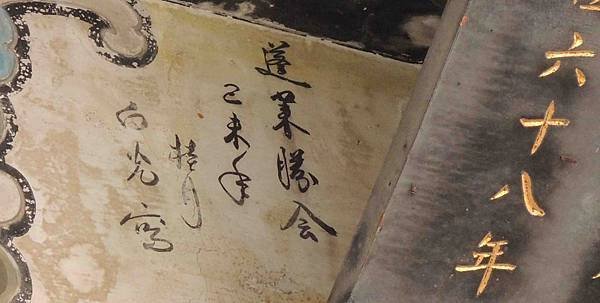 六十八年
蓬萊勝会
己未年
桂月
白光寫